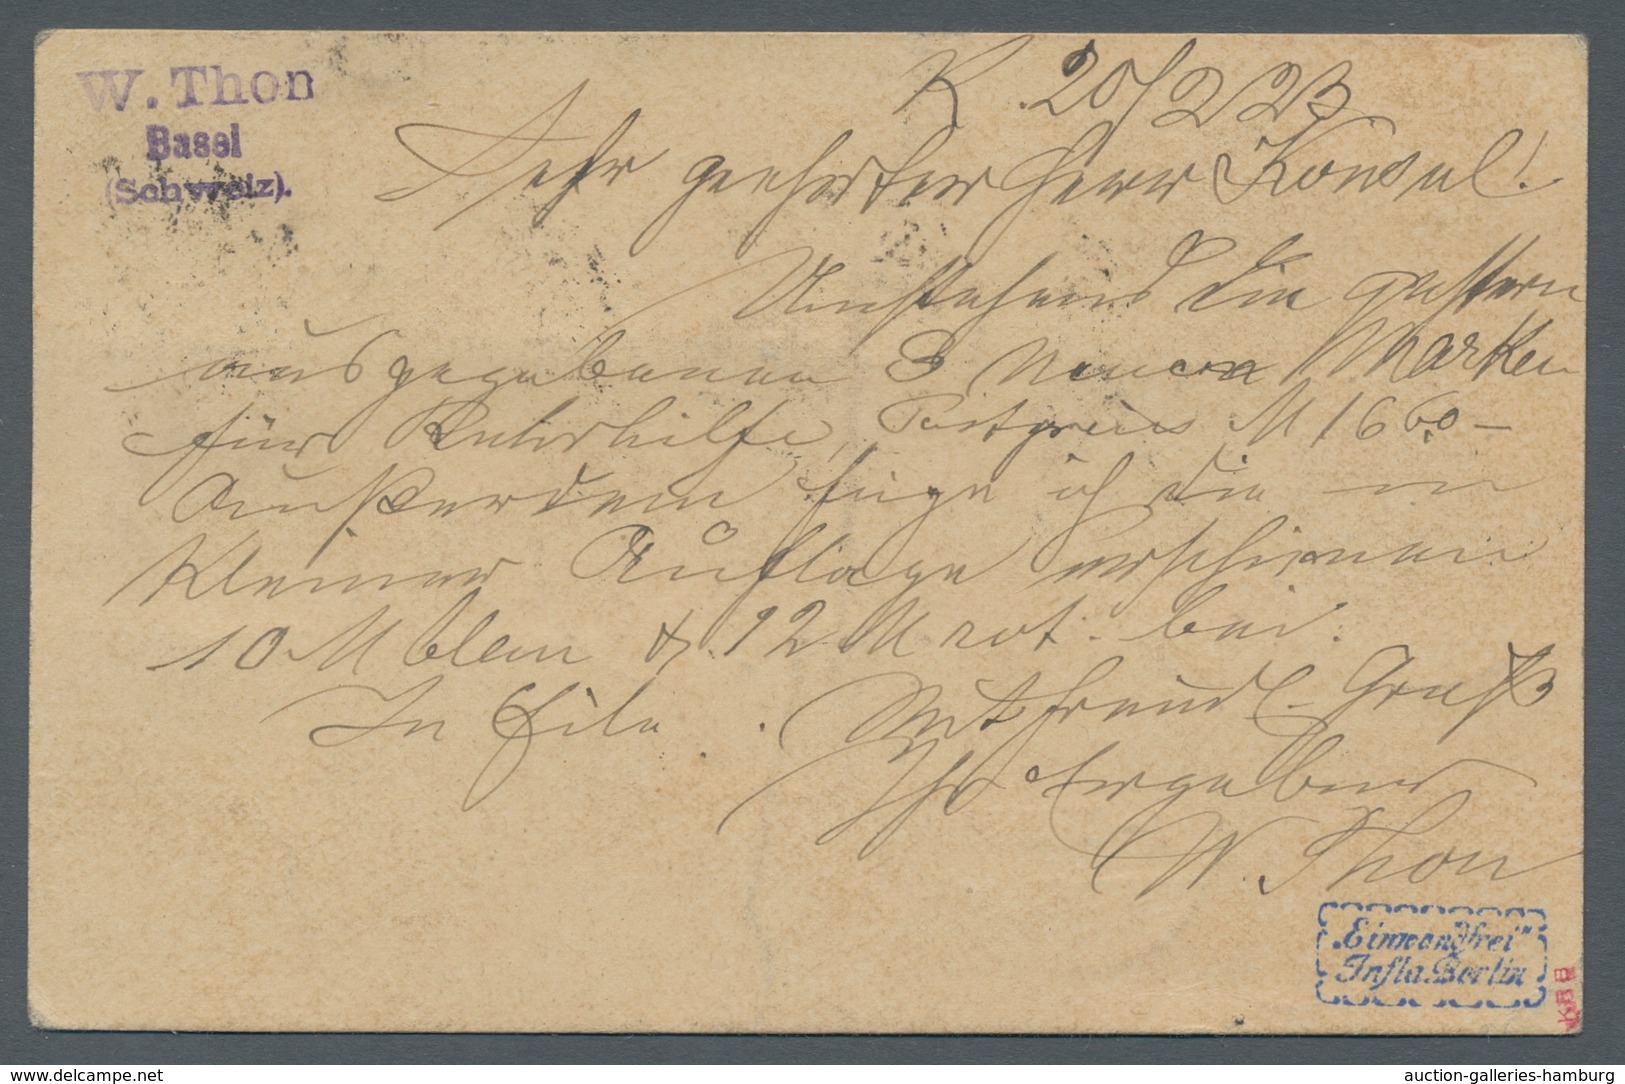 W. Thon
Basel
(Schweiz).
K. 20/2 23
Sehr geehrter Herr Konsul!
Umstehend die gestern
ausgegebenen 3 neuen Marken
für Ruhrhilfe, M 1660 –
Außerdem füge ich die in
kleiner Auflage erschienenen
10 M blau & 12 M rot bei.
In Eile. Mit freundl. Gruß
Ihr Ergebener
W. Thon
"Einwandfrei"
Infla Berlin
auction-galleries-hamburg
www.delcampe.net